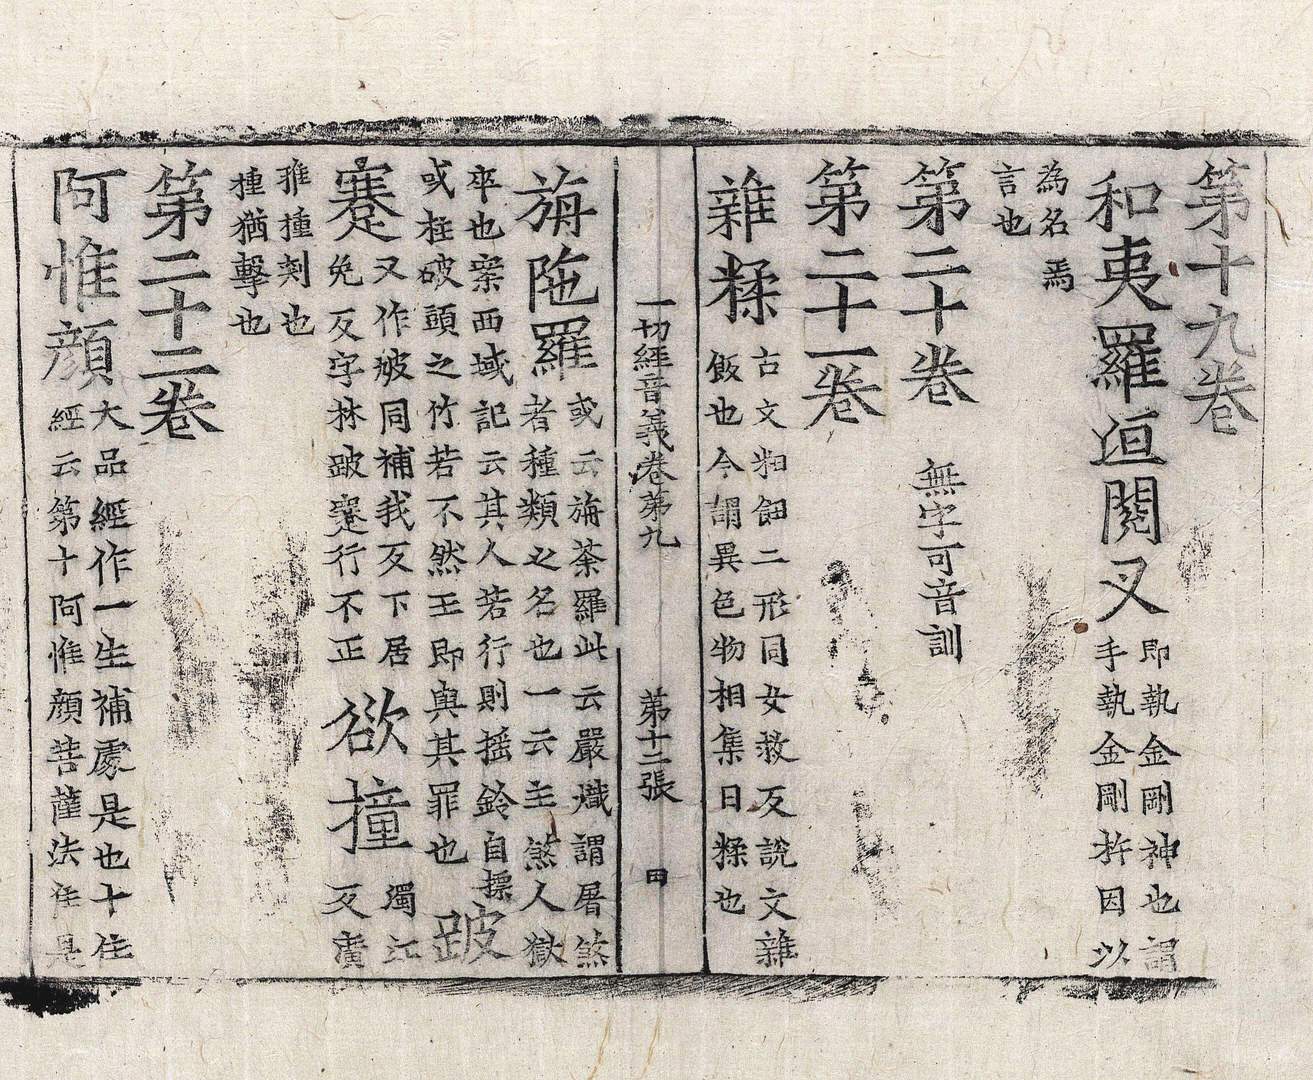 第十九卷
和夷羅洹閱叉 即執金剛神也謂
手執金剛杵因以
為名焉
言也
第二十卷 無字可音訓
第二十一卷
雜糅 古文粈䬦二形同女救反說文雜
飯也今謂異色物相集曰糅也
一切經音義卷第九 第十二張 田
旃陁羅 或云旃荼羅此云嚴熾謂屠煞
者種類之名也一云主煞人獄
卒也案西域記云其人若行則摇鈴自摽
或柱破頭之竹若不然王即與其罪也 跛
蹇 又作㢯同補我反下居
免反字林跛蹇行不正 欲撞 濁江
反廣
雅撞刾也
撞猶擊也
第二十二卷
阿惟顔 大品經作一生補處是也十住
經云第十阿惟顔菩薩法住是